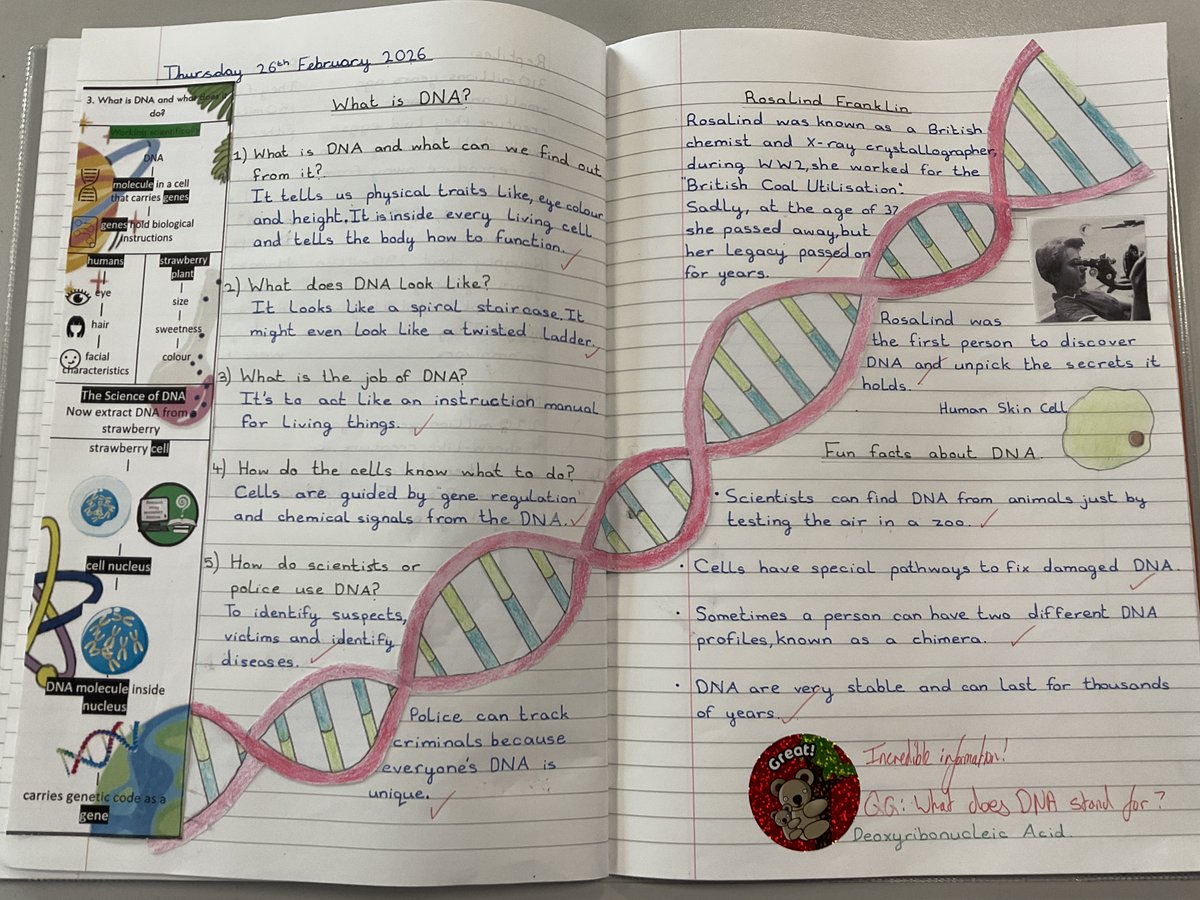 Thursday 26th February 2026
3. What is DNA and what does it
do?
Working scientifically
DNA
molecule in a cell
that carries genes
genes hold biological
instructions
humans
eye
hair
facial
characteristics
strawberry
plant
size
sweetness
colour
The Science of DNA
Now extract DNA from a
strawberry
strawberry cell
cell nucleus
DNA molecule inside
nucleus
carries genetic code as a
gene
What is DNA?
1) What is DNA and what can we find out
from it?
It tells us physical traits like, eye colour
and height. It is inside every living cell
and tells the body how to function.
2) What does DNA look like?
It looks like a spiral staircase. It
might even look like a twisted ladder.
3) What is the job of DNA?
It's to act like an instruction manual
for living things.
4) How do the cells know what to do?
Cells are guided by gene regulation
and chemical signals from the DNA.
5) How do scientists or
police use DNA?
To identify suspects,
victims and identify
diseases.
Police can track
criminals because
everyone's DNA is
unique.
Rosalind Franklin
Rosalind was known as a British
chemist and X-ray crystallographer,
during WW2, she worked for the
"British Coal Utilisation".
Sadly, at the age of 37
she passed away, but
her legacy passed on
for years.
Rosalind was
the first person to discover
DNA and unpick the secrets it
holds.
Human Skin Cell
Fun facts about DNA.
• Scientists can find DNA from animals just by
testing the air in a zoo.
• Cells have special pathways to fix damaged DNA.
• Sometimes a person can have two different DNA
profiles, known as a chimera.
• DNA are very stable and can last for thousands
of years.
Great!
Incredible information!
QQ: What does DNA stand for?
Deoxyribonucleic Acid.